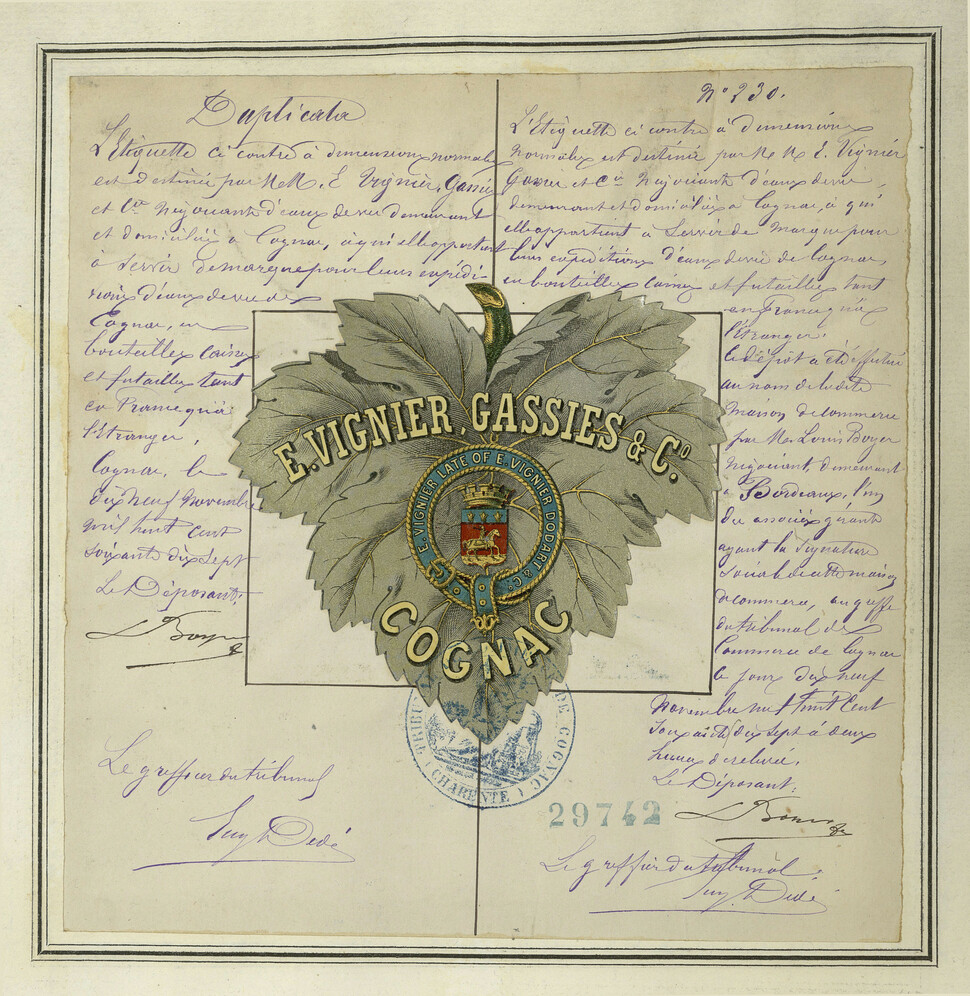 Duplicata
L'Etiquette ci contre à dimensions normales
est destinée par M.M. E. Vignier, Gassies
et Cie Négociant d'eaux de vie demeurant
et domiciliés à Cognac, à qui elle appartient
à servir de marque pour leurs expédi-
tions d'eaux de vie de
Cognac, en
bouteilles caisses
et futailles tant
en France qu'à
l'Etranger,
Cognac, le
dix neuf novembre
mil huit cent
soixante dix sept
Le Déposant,
L Boyer
Le greffier du tribunal
Dedé
N° 230.
L'Etiquette ci contre à dimensions
normales est destinée par M M E. Vignier
Gassies et Cie Négociant d'eaux de vie
demeurant et domiciliés à Cognac, à qui
elle appartient à Servir de Marque pour
leurs expéditions d'eaux de vie de Cognac,
en bouteilles caisses et futailles tant
en France qu'à
l'Etranger,
le dépôt a été effectué
au nom de ladite
Maison de commerce
par Mr Louis Boyer
négociant, demeurant
à Bordeaux, l'un
des associés gérants
ayant la signature
sociale de cette maison
de commerce, au greffe
du tribunal de
Commerce de Cognac
le jour dix neuf
Novembre mil huit Cent
soixante dix sept à deux
heures de relevée.
Le Déposant:
L Boyer
Le greffier du tribunal.
Dedé
E. VIGNIER, GASSIES & Cie.
E. VIGNIER LATE OF E. VIGNIER DODART & Co
COGNAC
DE COGNAC
CHARENTE
29742